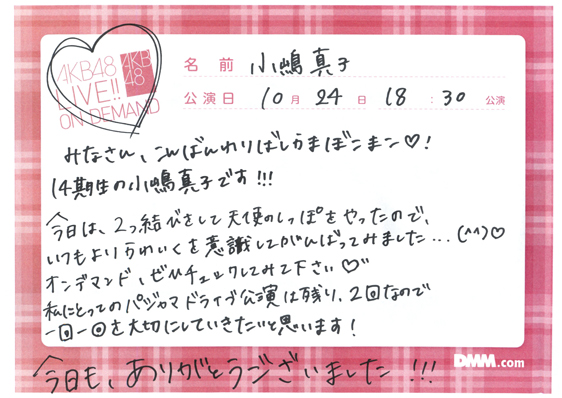 AKB48
LIVE!!
ON DEMAND
AKB
48
名前 小嶋真子
公演日 10月24日 18:30公演
みなさん、こんばんわりばしかまぼこまこ♡!
14期生の小嶋真子です!!!
今日は、2つ結びをして天使のしっぽをやったので、
いつもよりかわいくを意識してがんばってみました...(^^)♡
オンデマンド、ぜひチェックしてみて下さい♡"
私にとってのパジャマドライブ公演は残り、2回なので
一回一回を大切にしていきたいと思います!
DMM.com
今日も、ありがとうございました!!!